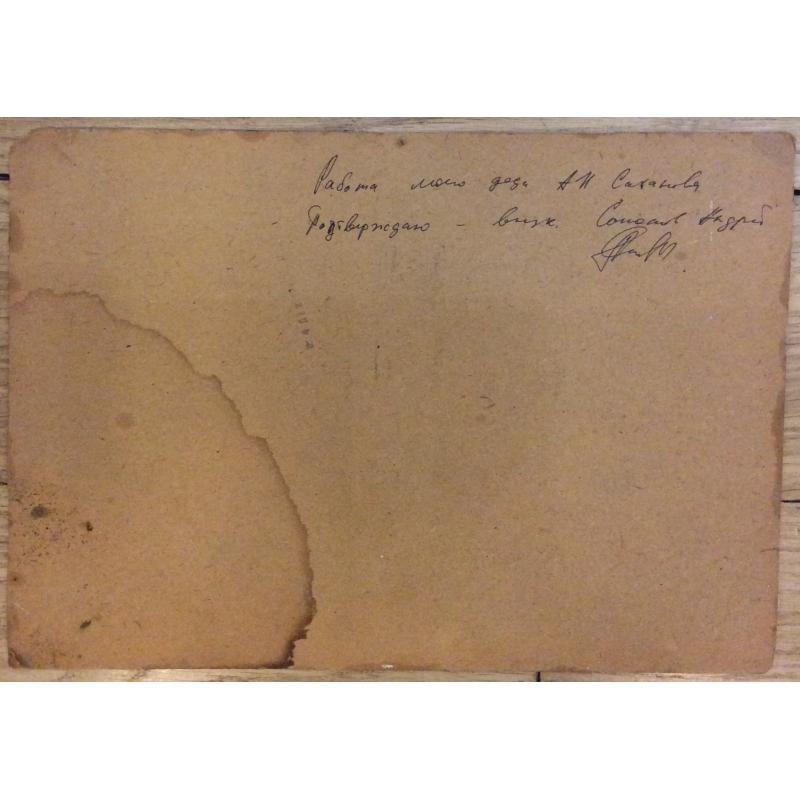 Работа моего деда А Н Саханова
Подтверждаю - внук. Андрей